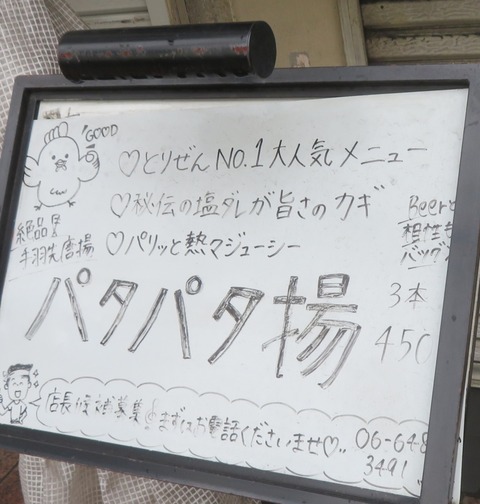 GOOD
♡とりぜんNO.1大人気メニュー
♡秘伝の塩ダレが旨さのカギ
♡パリッと熱マジューシー
絶品!!
手羽先唐揚
Beerと
相性も
バツグン
パタパタ揚
3本
450
店長候補募集 まずはお電話くださいませ♡..
06-648
3491